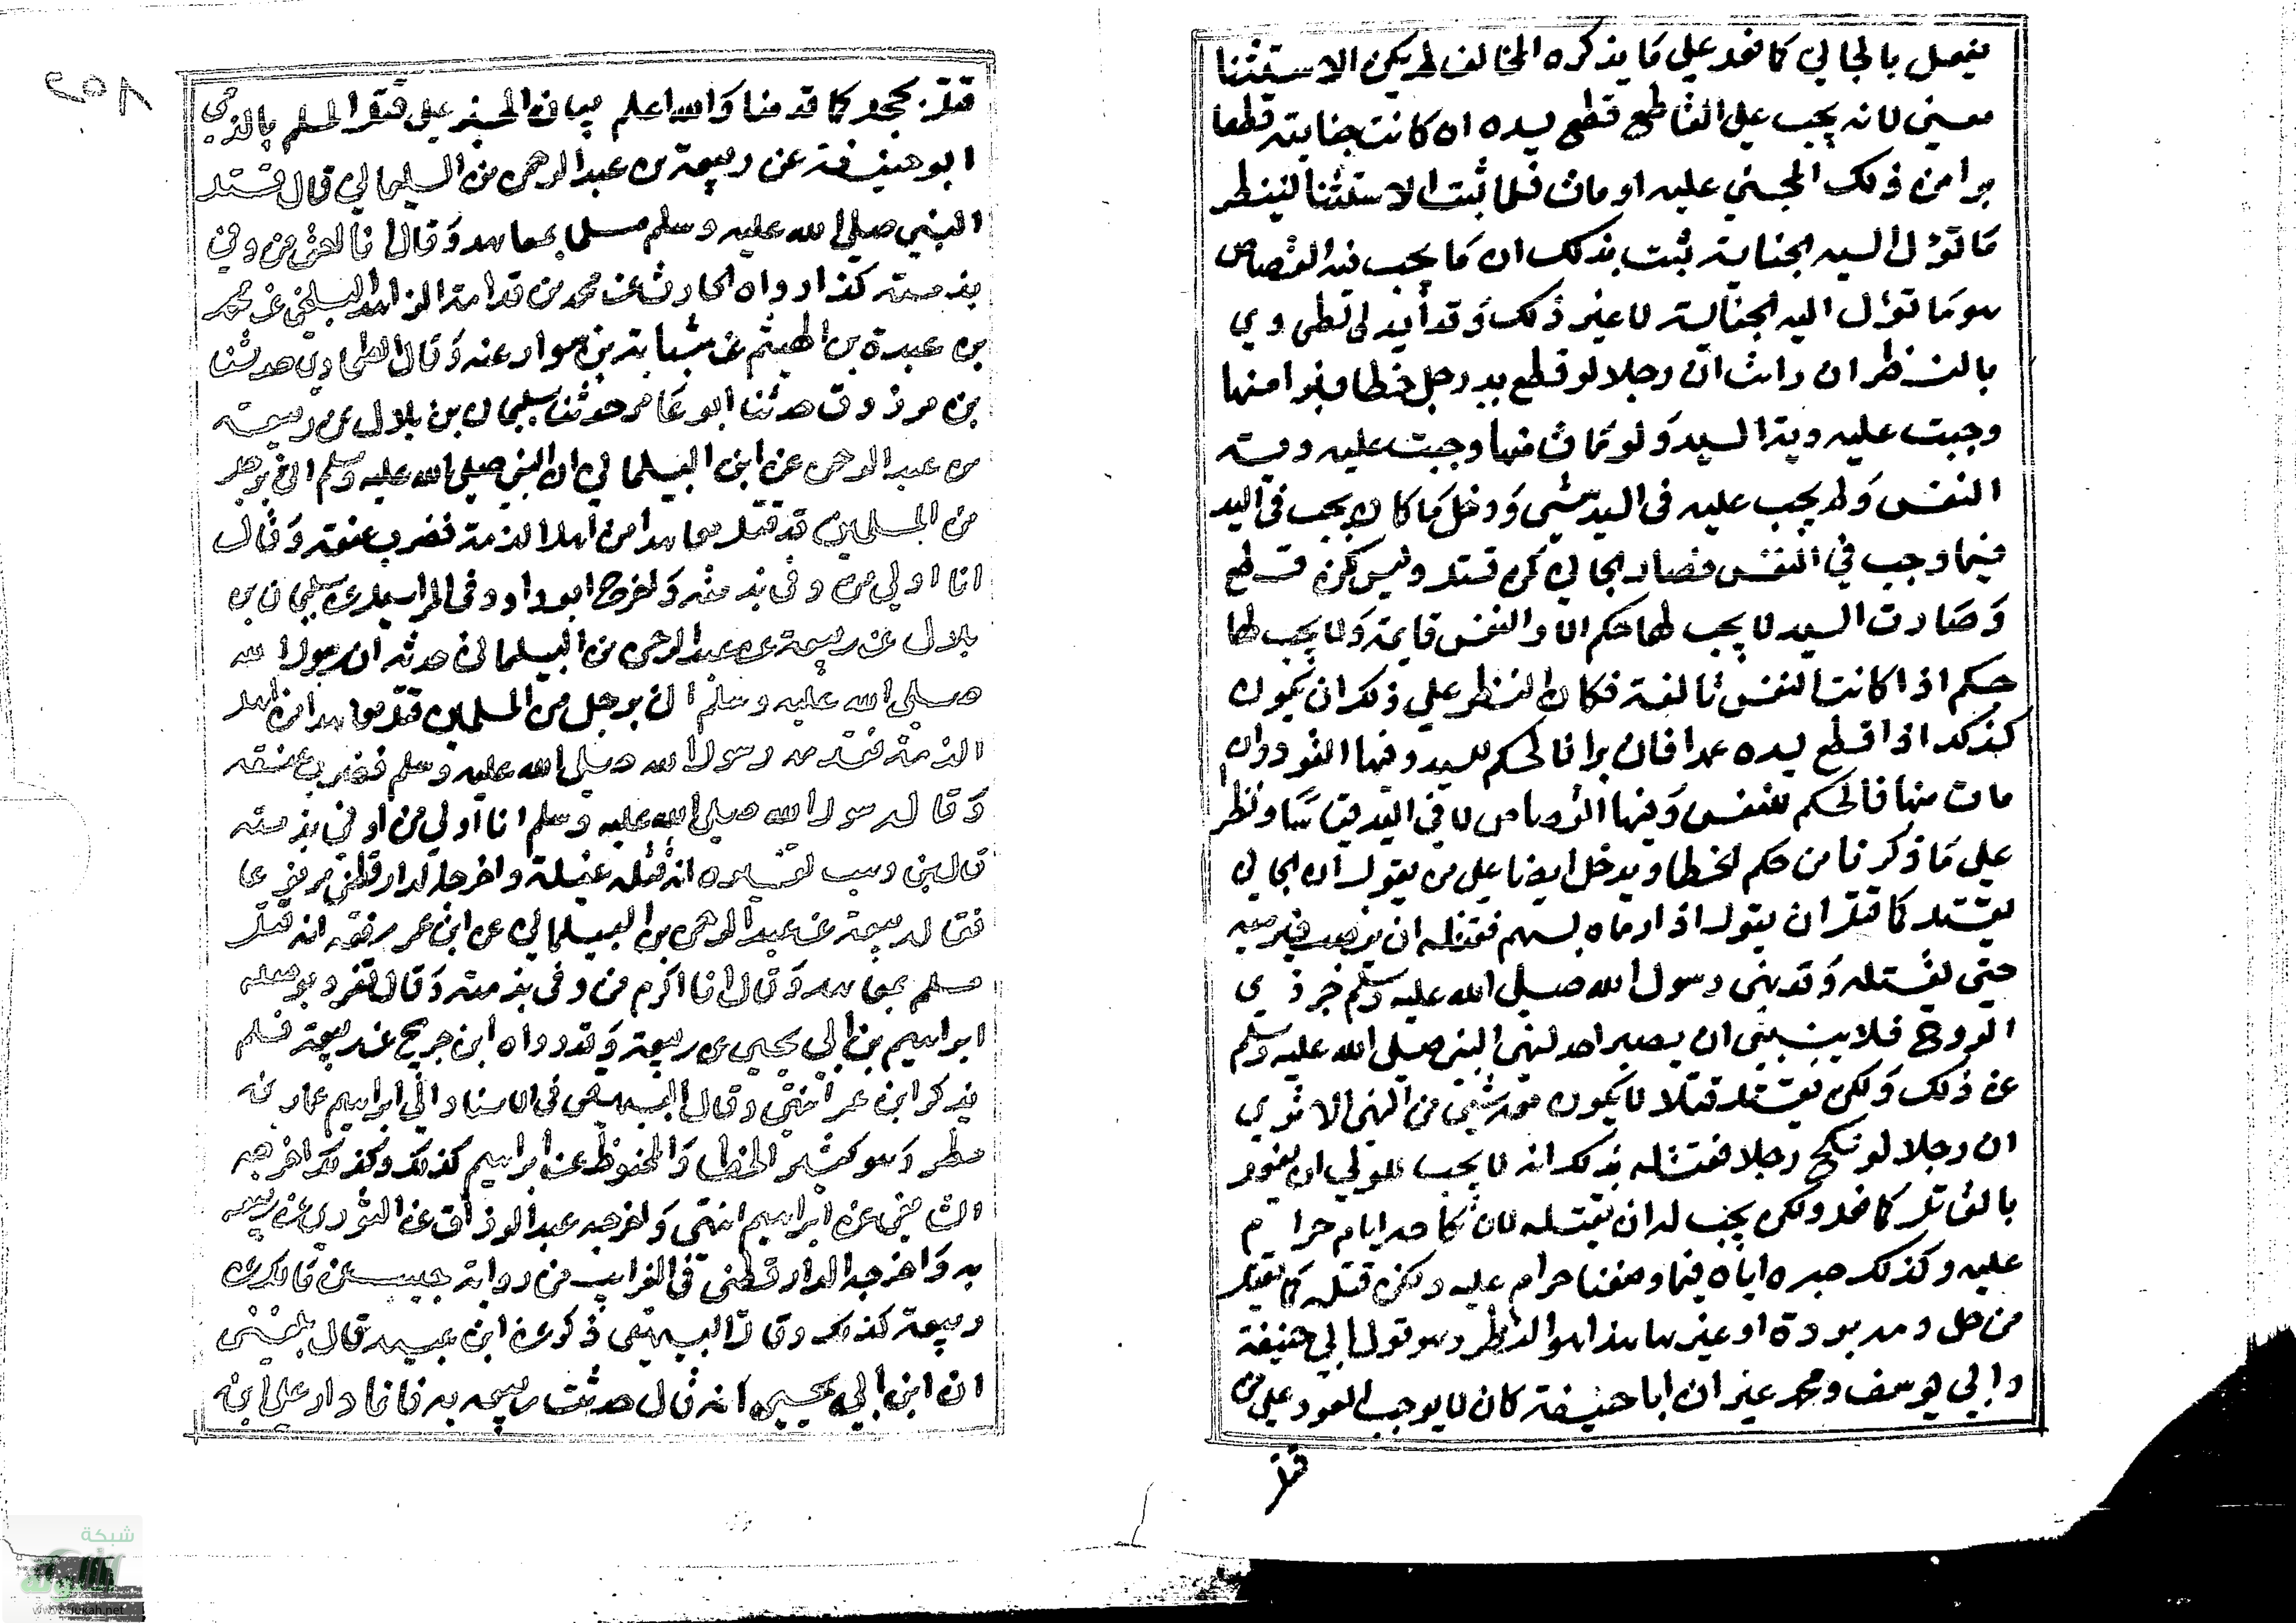 يفعل بالجاني كما فعل علي ما يذكره المخالف لم يكن الاستثنا
معني لانه يجب علي القاطع قطع يده ان كانت جنايته قطعا
برا من ذلك المجني عليه او مات فلما ثبت الاستثنا لينظر
ما تؤل اليه الجناية ثبت بذلك ان ما يجب فيه القصاص
هو ما تؤل اليه الجناية لا غير ذلك وقد أيد الطحاوي
بالنظر ان رايت ان رجلا لو قطع يد رجل خطا فبرا منها
وجبت عليه دية اليد ولو مات منها وجبت عليه دية
النفس ولم يجب عليه في اليد شي ودخل ما كان يجب في اليد
فيما وجب في النفس فصار الجاني كمن قتل وليس كمن قطع
وصارت اليد لا يجب لها حكم الا والنفس قايمة ولا يجب لها
حكم اذا كانت النفس تالفة فكان النظر علي ذلك ان يكون
كذلك اذا قطع يده عمدا فان برا فالحكم لليد وفيها القود وان
مات منها فالحكم للنفس وفيها القصاص لا في اليد قياسا ونظرا
علي ما ذكرنا من حكم الخطا ويدخل ايضا علي من يقول ان الجاني
يقتل كما قتل ان يقول اذا رماه بسهم فقتله ان ينصب فيرميه
حتي يقتله وقد نهي رسول الله صلي الله عليه وسلم عن صبر ذي
الروح فلا ينبغي ان يصبر احد لنهي النبي صلي الله عليه وسلم
عن ذلك ولكن يقتل قتلا لا يكون معه شي من النهي الا تري
ان رجلا لو نكح رجلا فقتله بذلك انه لا يجب للولي ان يفعل
بالقاتل كما فعل ولكن يجب له ان يقتله لان نكاحه اياه حرام
عليه وكذلك صبره اياه فيما وصفنا حرام عليه ولكن قتله كما يقتل
من حل دمه بردة او غيرها هذا هو النظر وهو قول ابي حنيفة
وابي يوسف ومحمد غير ان ابا حنيفة كان لا يوجب القود علي من
قتل
٢٥٨
قتل بحجر كما قدمنا والله اعلم بيان الخبر علي قتل المسلم بالذمي
ابو حنيفة عن ربيعة بن عبد الرحمن بن السليماني قال قتل
النبي صلي الله عليه وسلم مسلما بمعاهد وقال انا احق من وفي
بذمته كذا رواه الحارث عن محمد بن قدامة الزاهد البلخي عن محمد
بن عبدة بن الهيثم عن شبابة بن سوار عنه وقال الطحاوي حدثنا
بن مرزوق حدثنا ابو عامر حدثنا سليمان بن بلال عن ربيعة
بن عبد الرحمن عن ابن البيلماني ان النبي صلي الله عليه وسلم اتي برجل
من المسلمين قد قتل معاهدا من اهل الذمة فضرب عنقه وقال
انا اولي من وفي بذمته واخرج ابو داود في المراسيل عن سليمان بن
بلال عن ربيعة عن عبد الرحمن بن البيلماني حدثه ان رسول الله
صلي الله عليه وسلم اتي برجل من المسلمين قتل معاهدا من اهل
الذمة فقدمه رسول الله صلي الله عليه وسلم فضرب عنقه
وقال رسول الله صلي الله عليه وسلم انا اولي من اوفي بذمته
قال بن وهب تفسيره انه قتله غيلة واخرجه الدارقطني مرفوعا
فقال ربيعة عن عبد الرحمن بن البيلماني عن ابن عمر رفعه انه قتل
مسلم بمعاهد وقال انا اكرم من وفي بذمته وقال تفرد بوصله
ابراهيم بن ابي يحيي عن ربيعة وقد رواه ابن جريج عن ربيعة فلم
يذكر ابن عمر انتهي وقال البيهقي في الاسناد الي ابراهيم عمار بن
مطر وهو كثير الخطا والمحفوظ عن ابراهيم كذلك وكذلك اخرجه
الشافعي عن ابراهيم انتهي واخرجه عبد الرزاق عن الثوري عن ربيعة
به واخرجه الدارقطني في الغرايب من رواية حبيب عن مالك عن
ربيعة كذلك وقال البيهقي ذكر عن ابن عبيد قال بلغني
ان ابن ابي يحيي انه قال حدثت ربيعة به فانما دار علي ابن